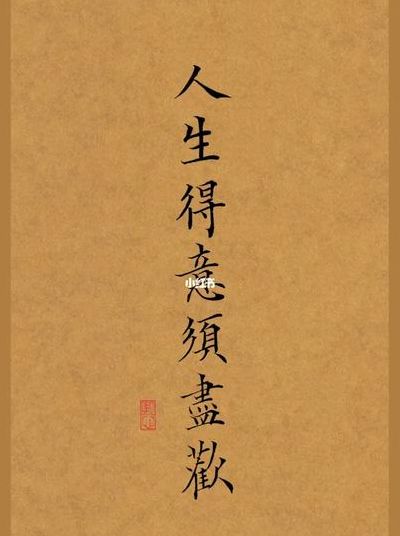 人生得意須盡歡
小红书